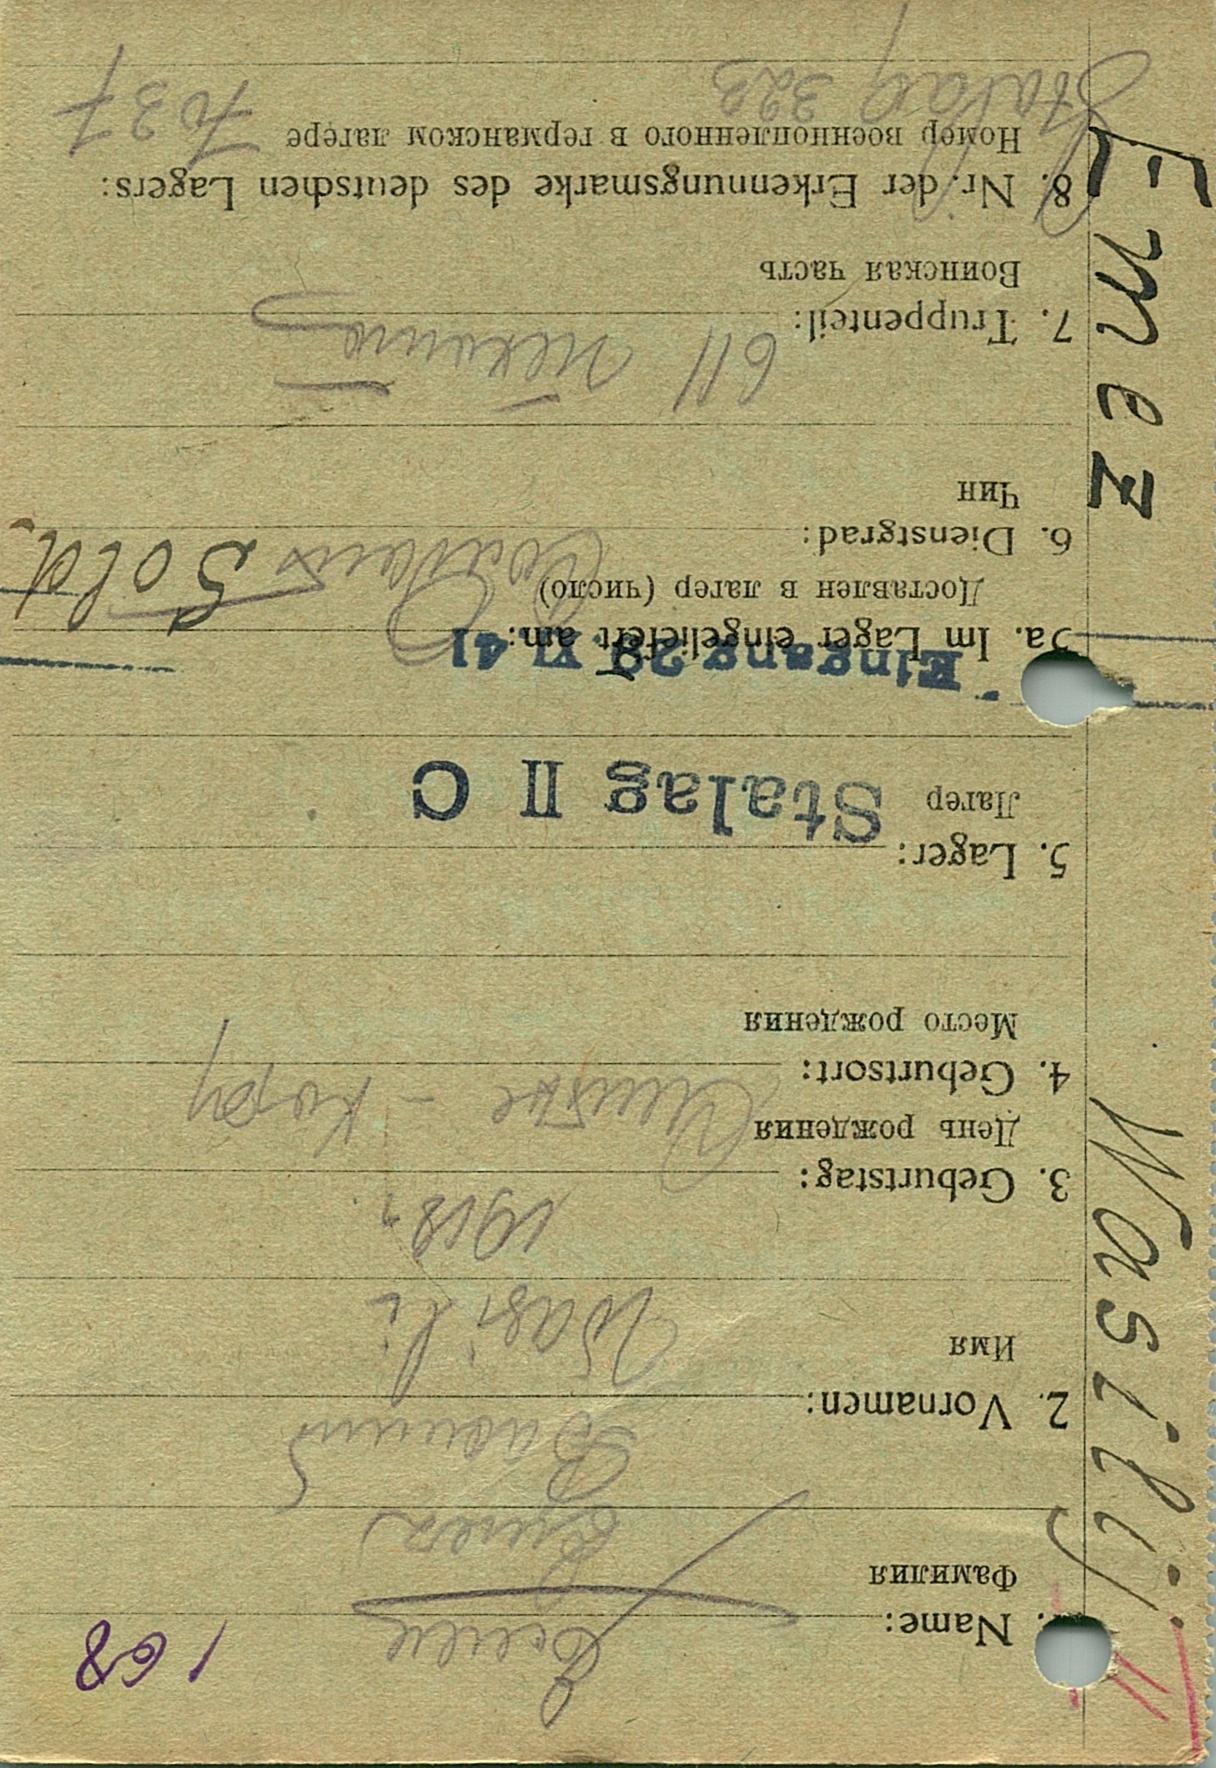 168
1. Name:
Фамилия
Emez
2. Vornamen:
Имя
Wasili
3. Geburtstag: 1918
День рождения
4. Geburtsort:
Место рождения
5. Lager: Stalag II C
Лагер
5a. Im Lager eingeliefert am: Eingang 28. XI 41
Доставлен в лагер (число)
6. Dienstgrad: Sold.
Чин
7. Truppenteil: 611
Воинская часть
8. Nr. der Erkennungsmarke des deutschen Lagers:
Номер военнопленного в германском лагере 7037
Stalag 323
Emez Wasilij.